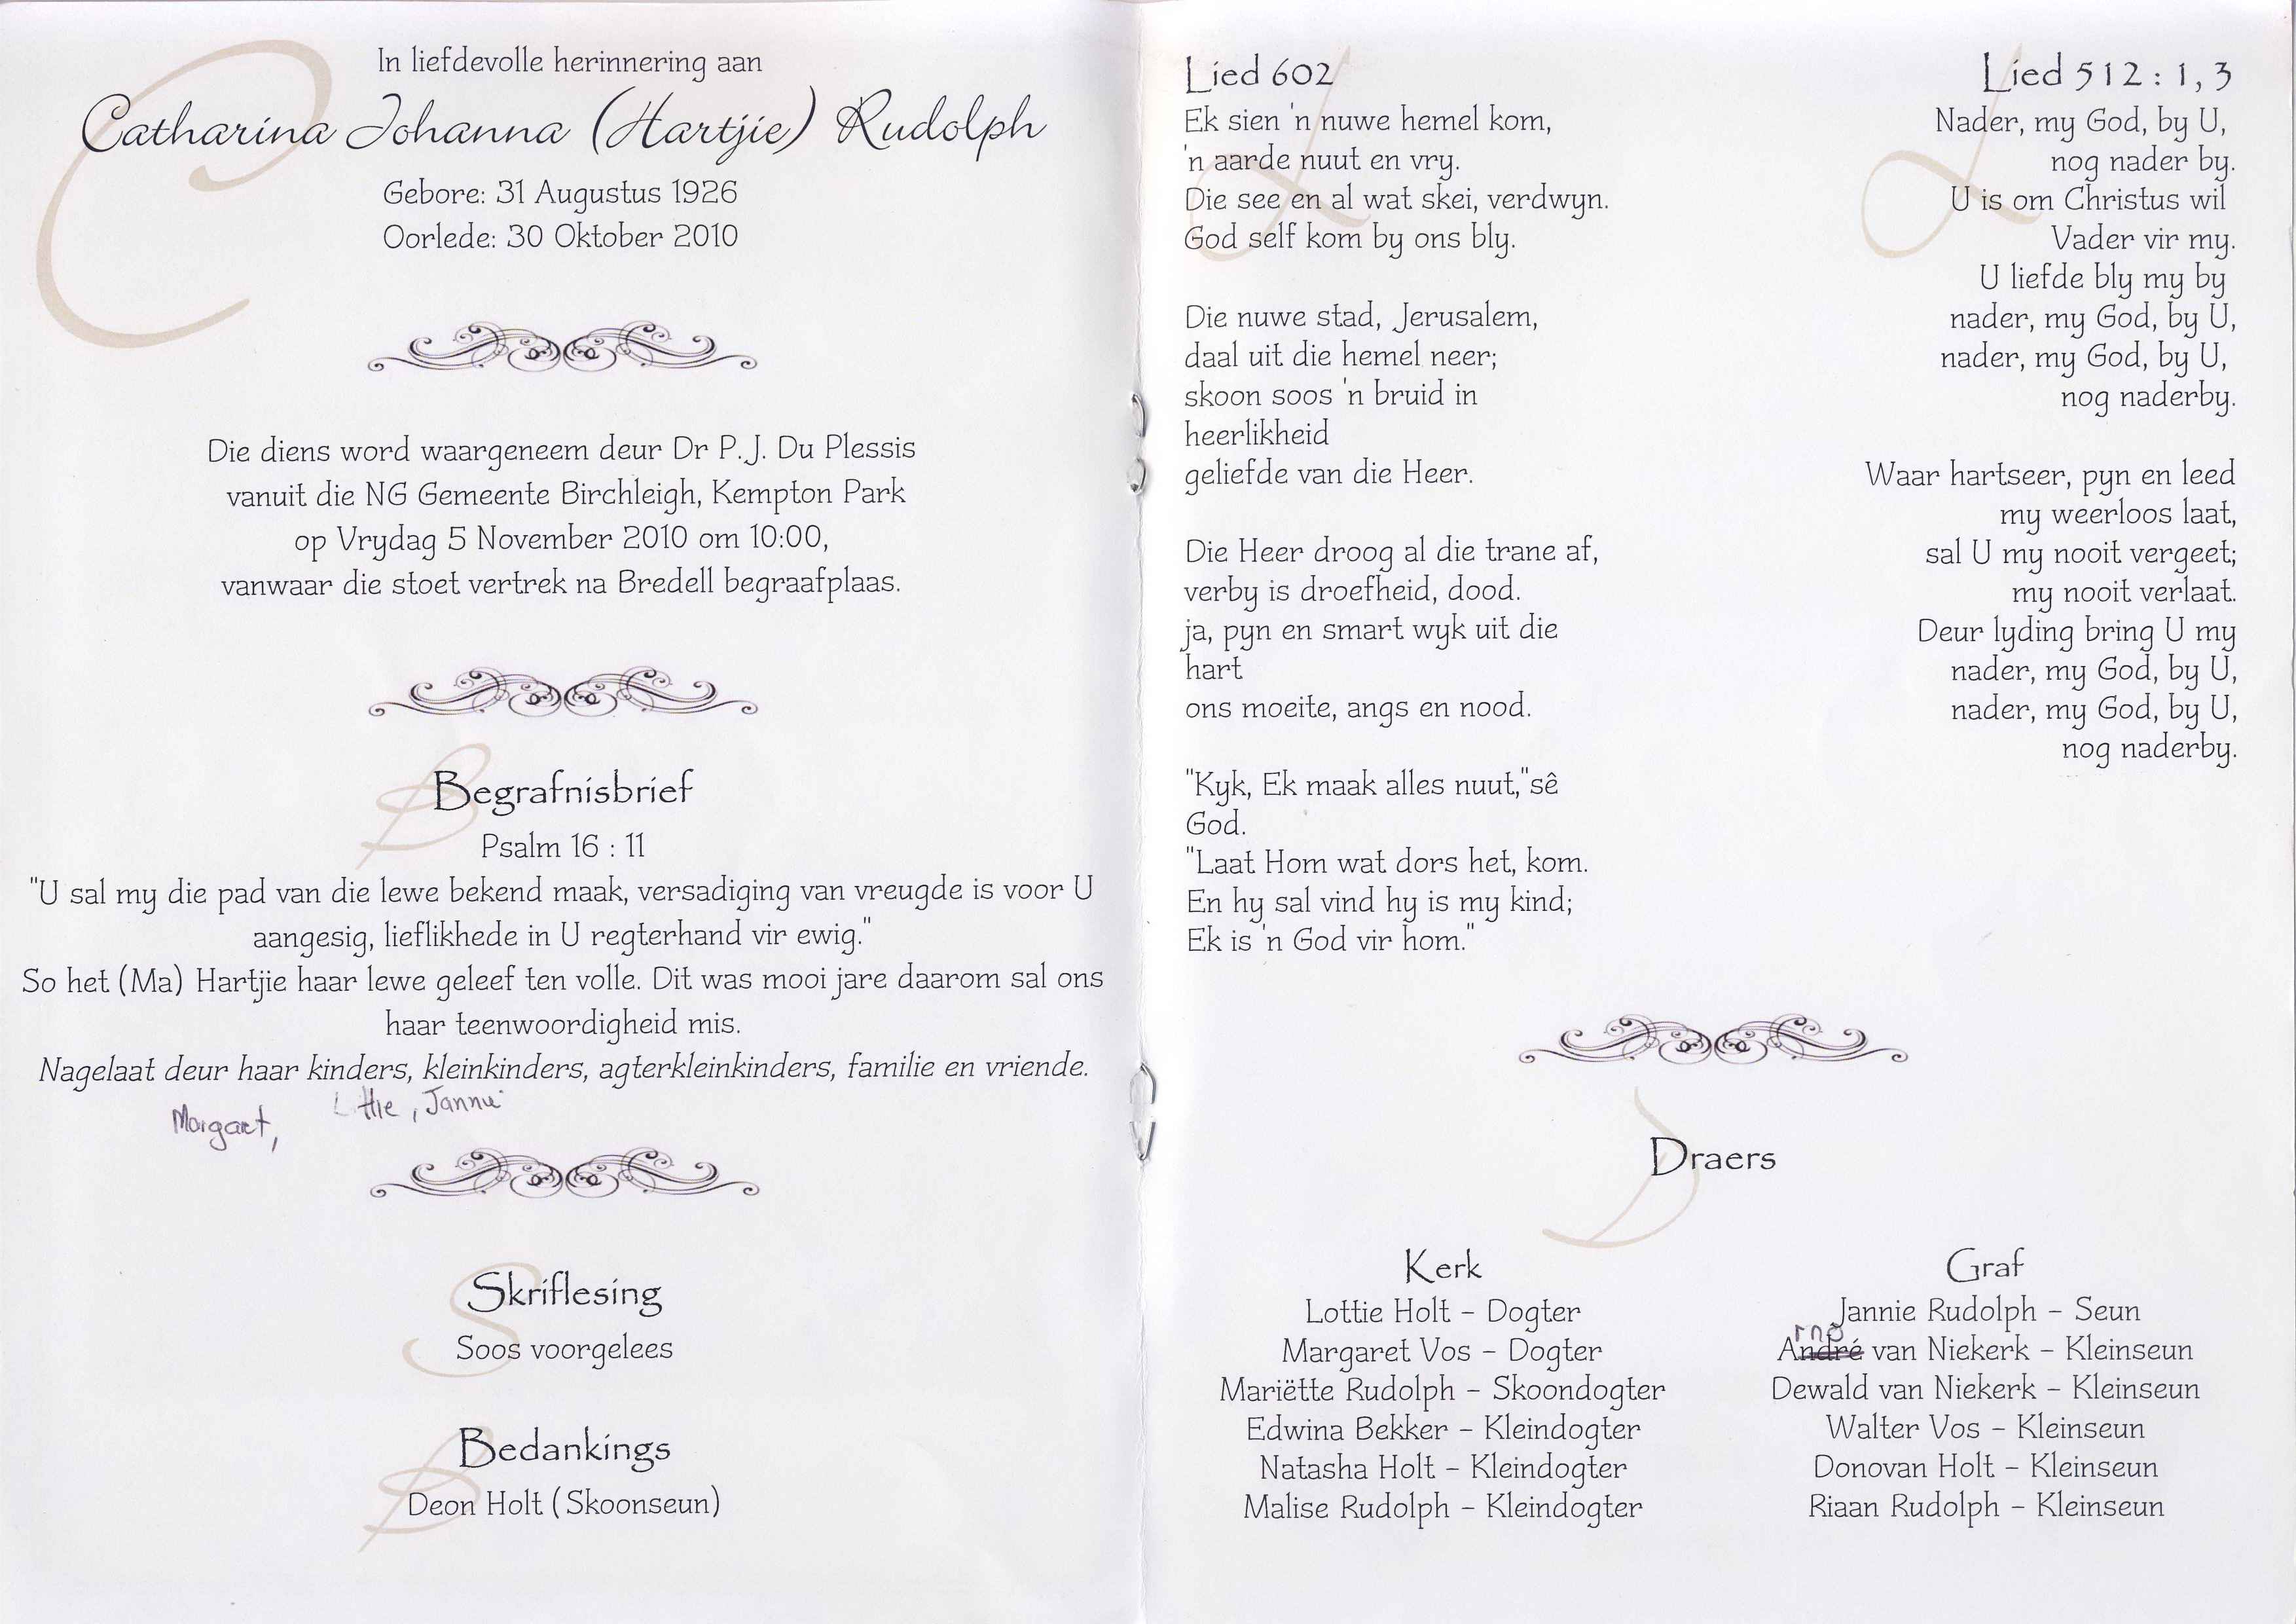 In liefdevolle herinnering aan
Catharina Johanna (Hartjie) Rudolph
Gebore: 31 Augustus 1926
Oorlede: 30 Oktober 2010
Die diens word waargeneem deur Dr P.J. Du Plessis
vanuit die NG Gemeente Birchleigh, Kempton Park
op Vrydag 5 November 2010 om 10:00,
vanwaar die stoet vertrek na Bredell begraafplaas.
Begrafnisbrief
Psalm 16 : 11
"U sal my die pad van die lewe bekend maak, versadiging van vreugde is voor U
aangesig, lieflikhede in U regterhand vir ewig."
So het (Ma) Hartjie haar lewe geleef ten volle. Dit was mooi jare daarom sal ons
haar teenwoordigheid mis.
Nagelaat deur haar kinders, kleinkinders, agterkleinkinders, familie en vriende.
Margaet, Jannie
Skriflesing
Soos voorgelees
Bedankings
Deon Holt (Skoonseun)
Lied 602
Ek sien 'n nuwe hemel kom,
'n aarde nuut en vry.
Die see en al wat skei, verdwyn.
God self kom by ons bly.
Die nuwe stad, Jerusalem,
daal uit die hemel neer;
skoon soos 'n bruid in
heerlikheid
geliefde van die Heer.
Die Heer droog al die trane af,
verby is droefheid, dood.
ja, pyn en smart wyk uit die
hart
ons moeite, angs en nood.
"Kyk, Ek maak alles nuut,"sê
God.
"Laat Hom wat dors het, kom.
En hy sal vind hy is my kind;
Ek is 'n God vir hom."
Lied 512 : 1, 3
Nader, my God, by U,
nog nader by.
U is om Christus wil
Vader vir my.
U liefde bly my by
nader, my God, by U,
nader, my God, by U,
nog naderby.
Waar hartseer, pyn en leed
my weerloos laat,
sal U my nooit vergeet;
my nooit verlaat.
Deur lyding bring U my
nader, my God, by U,
nader, my God, by U,
nog naderby.
Draers
Kerk
Lottie Holt – Dogter
Margaret Vos – Dogter
Mariëtte Rudolph – Skoondogter
Edwina Bekker – Kleindogter
Natasha Holt – Kleindogter
Malise Rudolph – Kleindogter
Graf
Jannie Rudolph – Seun
rno
André van Niekerk – Kleinseun
Dewald van Niekerk – Kleinseun
Walter Vos – Kleinseun
Donovan Holt – Kleinseun
Riaan Rudolph – Kleinseun